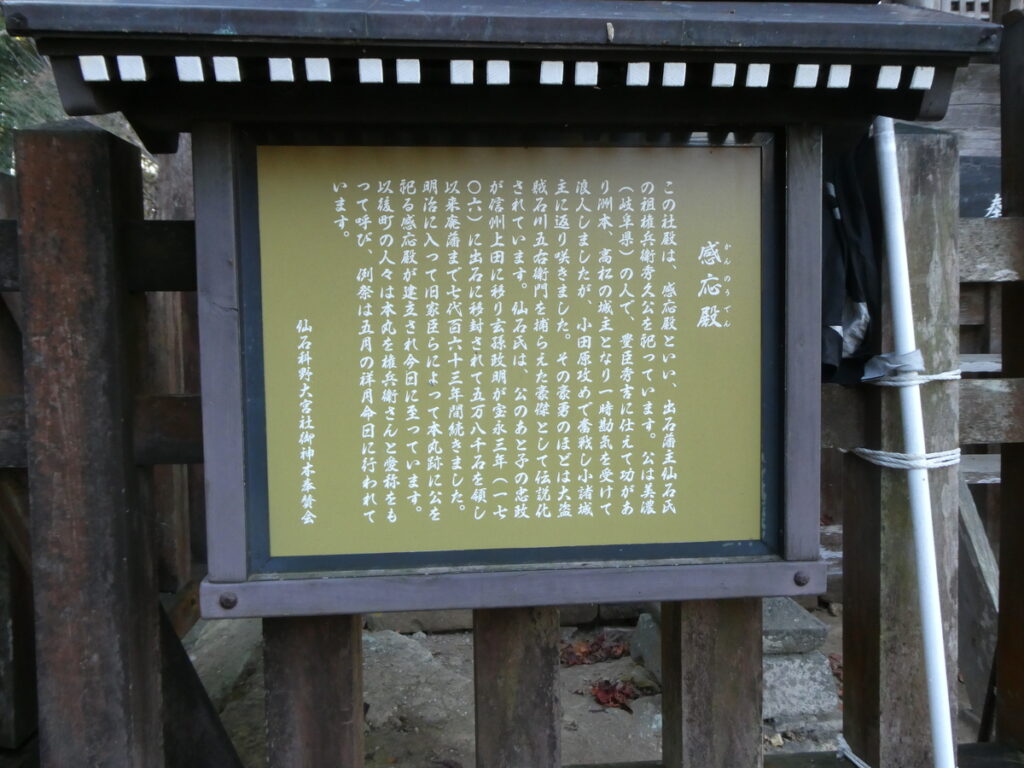 感応殿
かんのうでん
この社殿は、感応殿といい、出石藩主仙石氏
の祖権兵衛秀久公を祀っています。公は美濃
（岐阜県）の人で、豊臣秀吉に仕えて功があ
り洲本、高松の城主となり一時勘気を受けて
浪人しましたが、小田原攻めで奮戦し小諸城
主に返り咲きました。その豪勇のほどは大盗
賊石川五右衛門を捕らえた豪傑として伝説化
されています。仙石氏は、公のあと子の忠政
が信州上田に移り玄孫政明が宝永三年（一七
〇六）に出石に移封されて五万八千石を領し
以来廃藩まで七代百六十三年間続きました。
明治に入って旧家臣らによって本丸跡に公を
祀る感応殿が建立され今日に至っています。
以後町の人々は本丸を権兵衛さんと愛称をも
って呼び、例祭は五月の祥月命日に行われて
います。
仙石科野大宮社御神木奉賛会